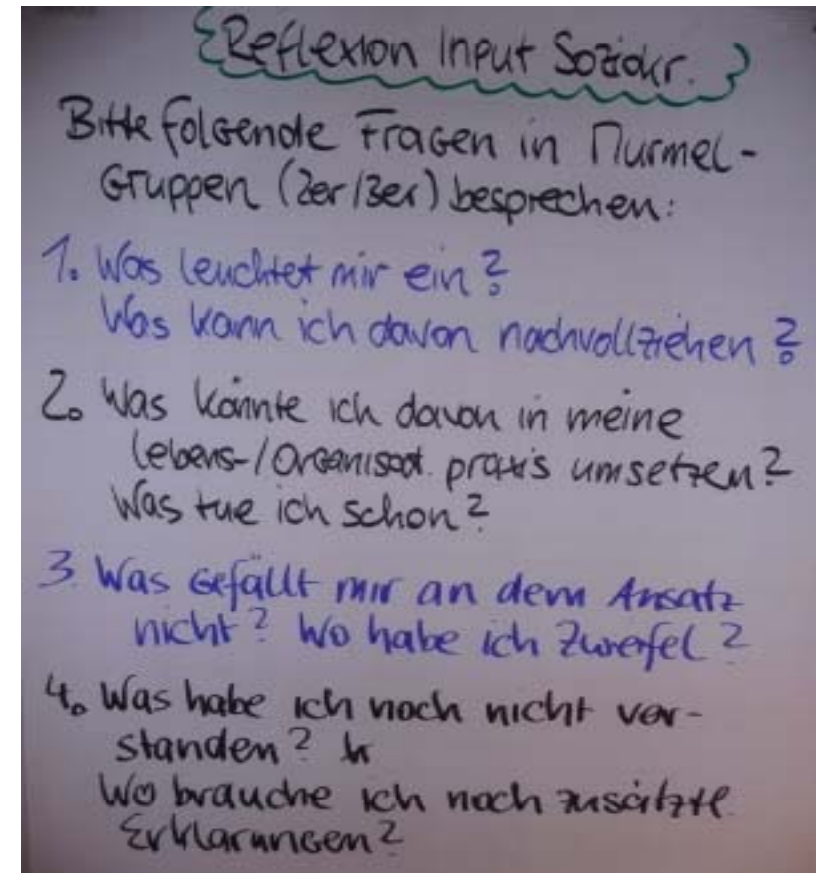 Reflexion Input Soziokr.
Bitte folgende Fragen in Murmel-
Gruppen (2er/3er) besprechen:
1. Was leuchtet mir ein?
Was kann ich davon nachvollziehen?
2. Was könnte ich davon in meine
Lebens-/Organisat. praxis umsetzen?
Was tue ich schon?
3. Was gefällt mir an dem Ansatz
nicht? Wo habe ich Zweifel?
4. Was habe ich noch nicht ver-
standen?
Wo brauche ich noch zusätzl.
Erklärungen?